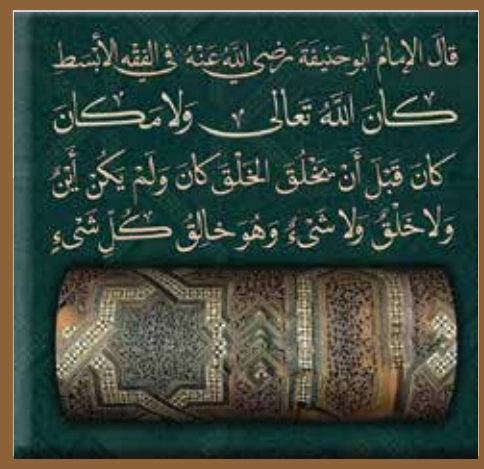 قالَ الإمامُ أبو حَنيفَةَ رضي اللهُ عَنْهُ في الفِقْهِ الأَبْسَطِ
كانَ اللهُ تَعالى ولا مَكان
كانَ قَبْلَ أَنْ يَخْلُقَ الخَلْقَ كانَ وَلَمْ يَكُنْ أَيْنٌ
وَلا خَلْقٌ وَلا شَىْءٌ وَهُوَ خالِقُ كُلِّ شَىْءٍ